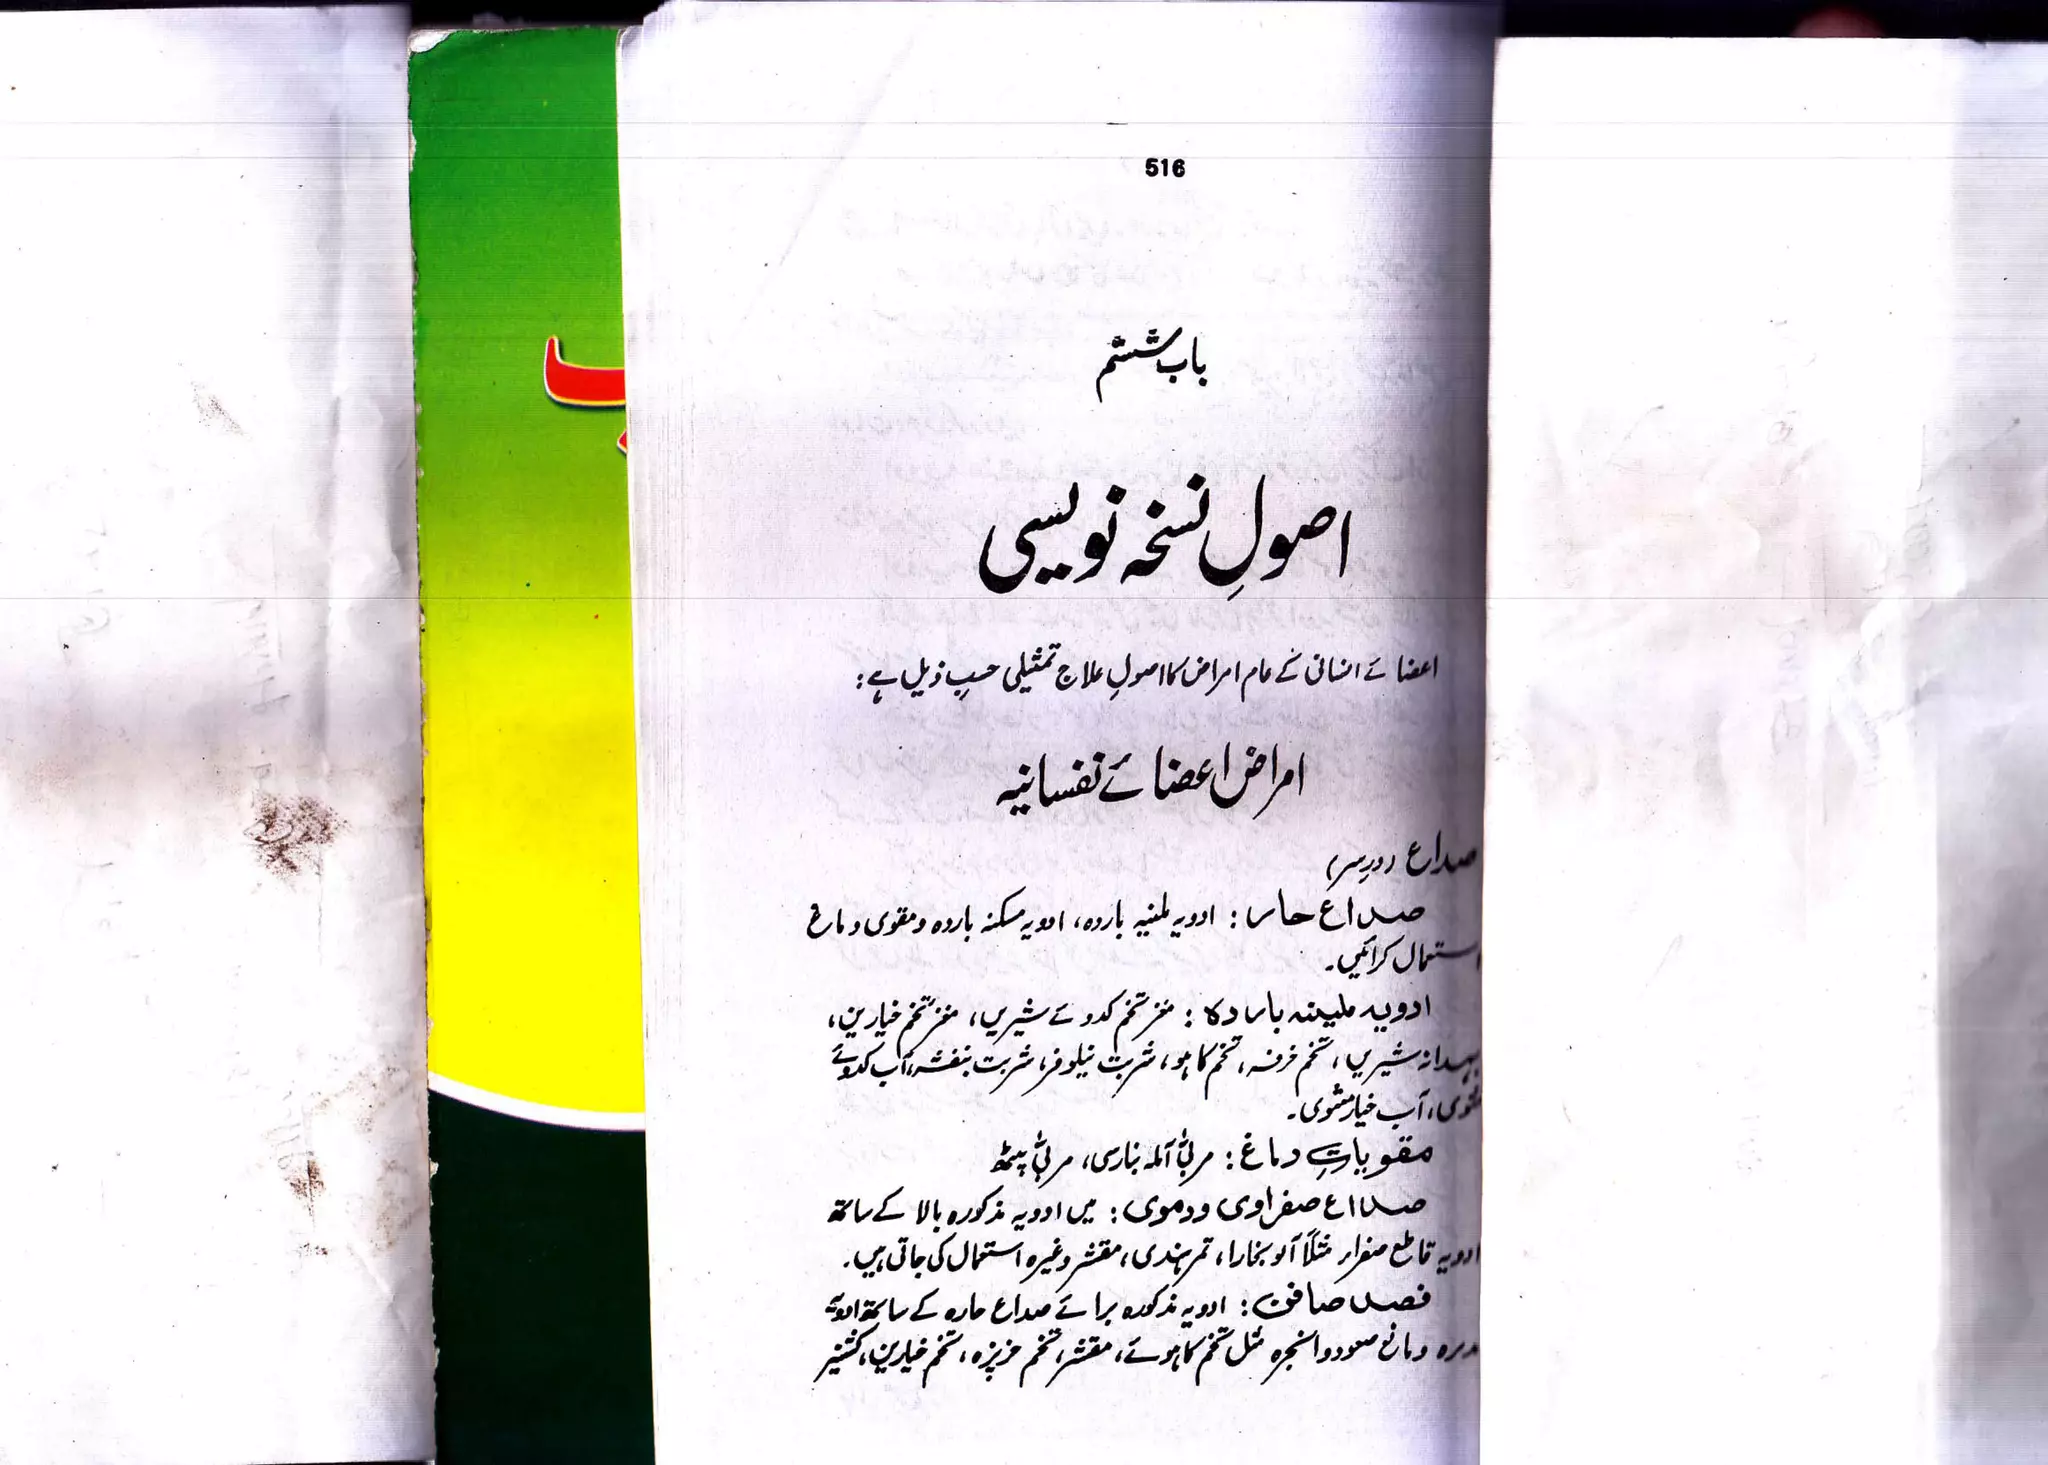 516
باب ششم
اصولِ نسخہ نویسی
اعضائے انسانی کے عام امراض کا اصولِ علاج تمثیلی حسبِ ذیل ہے:
امراض اعضائے نفسانیہ
صداع (دردِ سر)
صداع حار: ادویہ ملینہ باردہ، ادویہ مسکنہ باردہ و مقوی دماغ
استعمال کرائیں۔
ادویہ ملینہ باردہ: مغز تخم کدوئے شیریں، مغز تخم خیارین،
بہدانہ شیریں، تخم خرفہ، تخم کاہو، شربت نیلوفر، شربت بنفشہ، آب کدوئے
مشوی، آب خیار مشوی۔
مقویاتِ دماغ: مربیٰ آملہ بنارسی، مربیٰ پیٹھ
صداع صفراوی و دموی: میں ادویہ مذکورہ بالا کے ساتھ
ادویہ قاطع صفرار مثلاً آلو بخارا، تمر ہندی، مقشر وغیرہ استعمال کی جاتی ہیں۔
فصد صافن: ادویہ مذکورہ برائے صداع حارہ کے ساتھ ادویہ
مدرہ و مانع صعود و انجرہ مثل تخم کاہوئے، مقشر، تخم خرپزہ، تخم خیارین، کشنیز